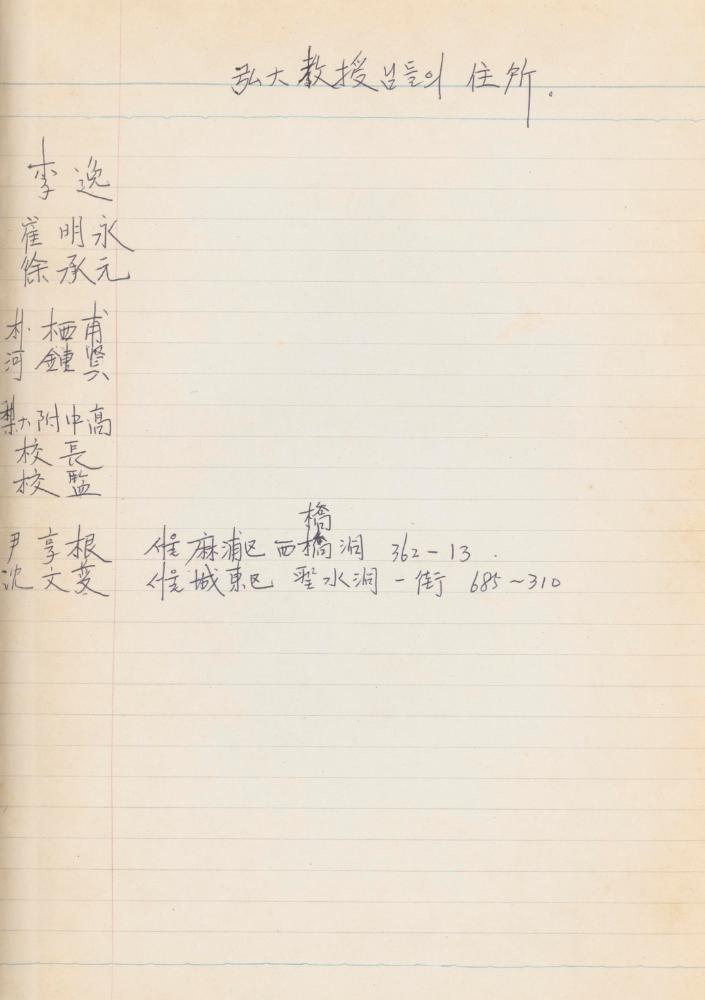 弘大教授님들의 住所.
李逸
崔明永
徐承元
朴栖甫
河鍾賢
梨大附中高
校長
校監
橋
尹享根 서울 麻浦区 西橋洞 362-13.
沈文燮 서울 城東区 聖水洞 一街 685~310